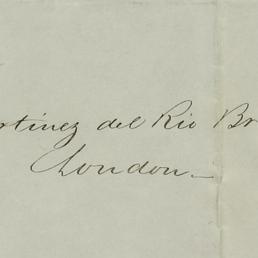 rtinez del Rio Br
London_